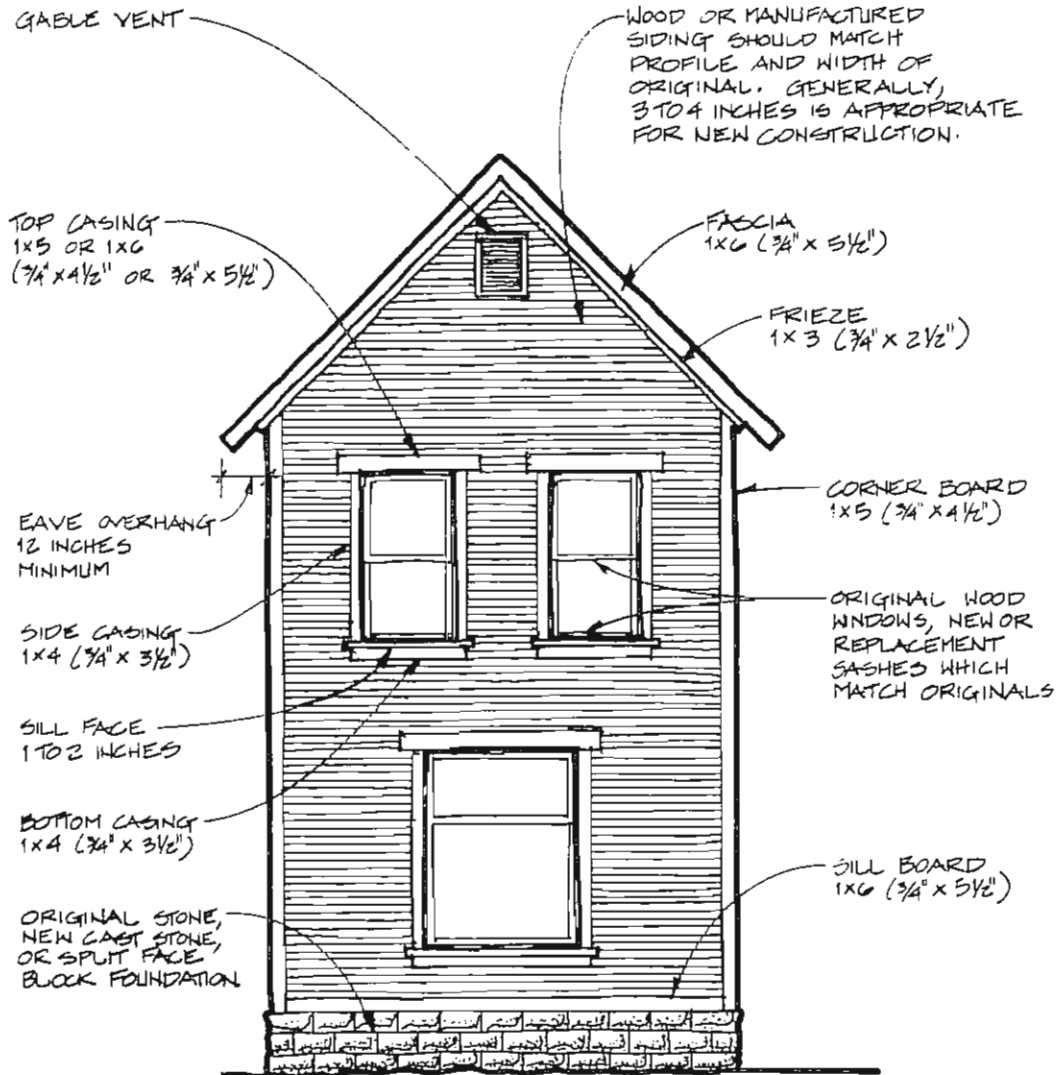 GABLE VENT
WOOD OR MANUFACTURED
SIDING SHOULD MATCH
PROFILE AND WIDTH OF
ORIGINAL. GENERALLY,
3 TO 4 INCHES IS APPROPRIATE
FOR NEW CONSTRUCTION.
TOP CASING
1x5 OR 1x6
(3/4" x 4 1/2" OR 3/4" x 5 1/2")
FASCIA
1x6 (3/4" x 5 1/2")
FRIEZE
1x3 (3/4" x 2 1/2")
EAVE OVERHANG
12 INCHES
MINIMUM
CORNER BOARD
1x5 (3/4" x 4 1/2")
SIDE CASING
1x4 (3/4" x 3 1/2")
ORIGINAL WOOD
WINDOWS, NEW OR
REPLACEMENT
SASHES WHICH
MATCH ORIGINALS
SILL FACE
1 TO 2 INCHES
BOTTOM CASING
1x4 (3/4" x 3 1/2")
SILL BOARD
1x6 (3/4" x 5 1/2")
ORIGINAL STONE,
NEW CAST STONE,
OR SPLIT FACE
BLOCK FOUNDATION